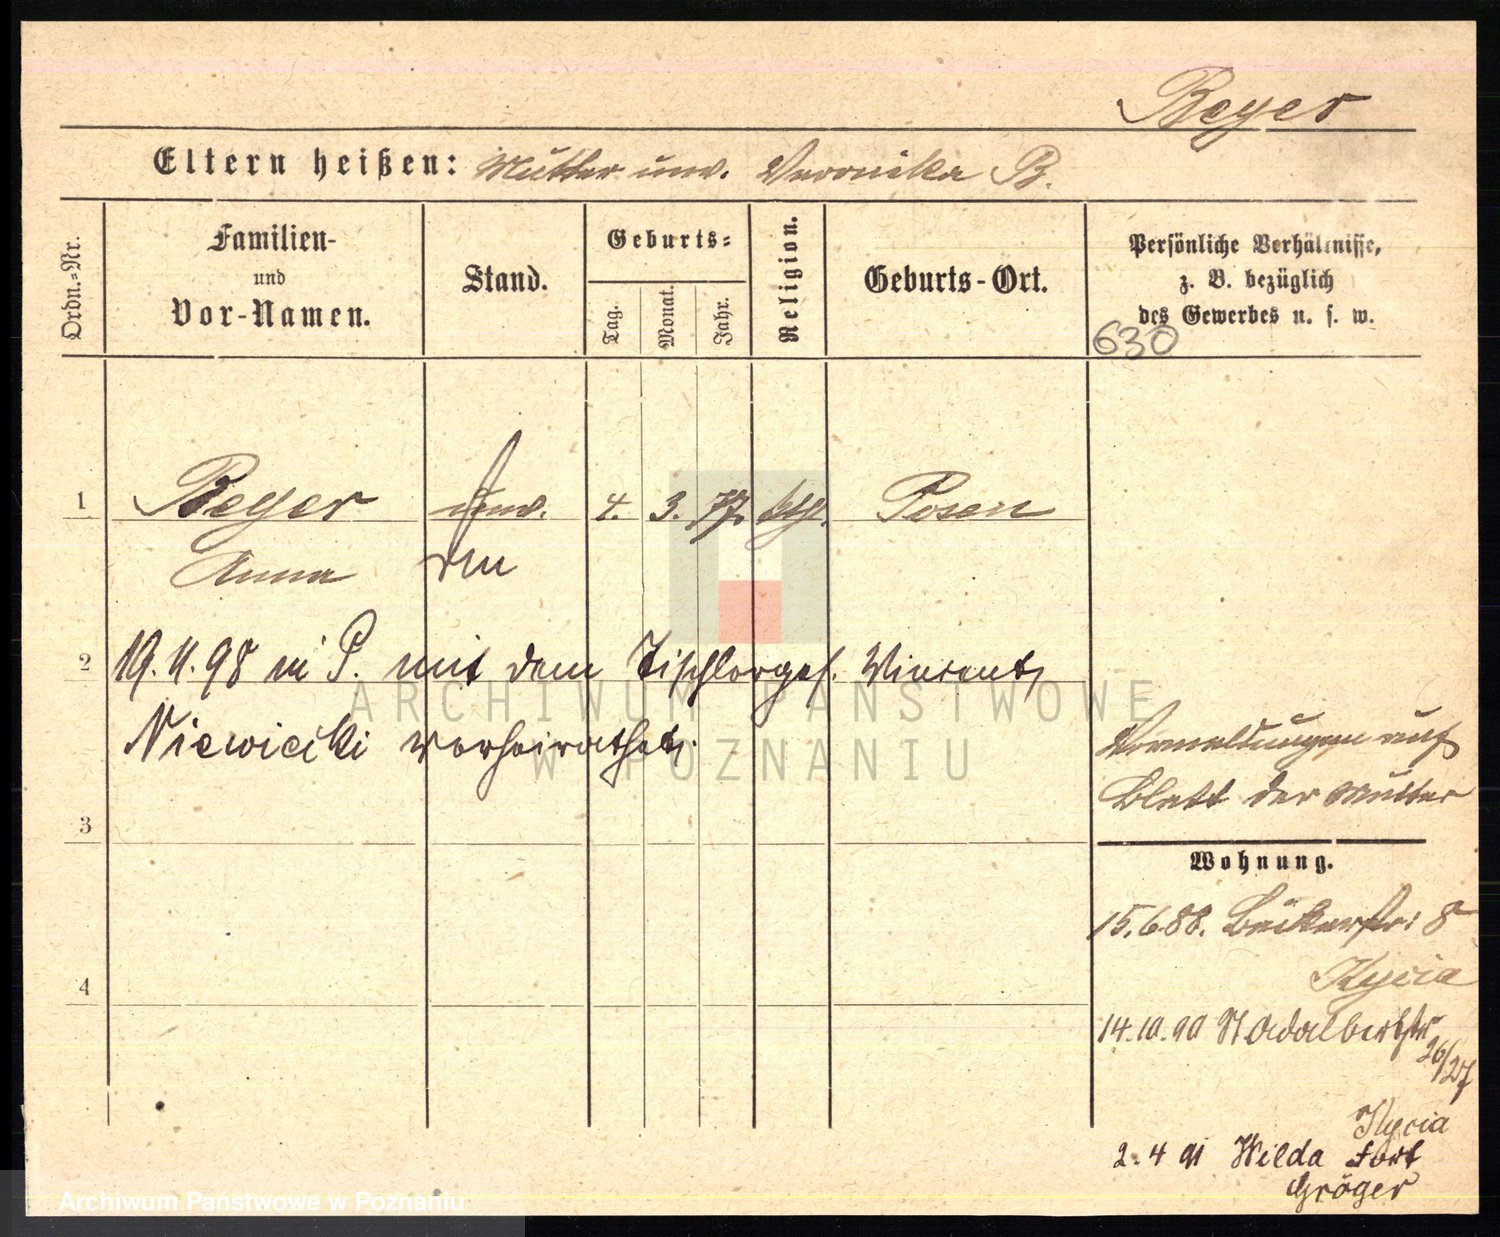 Beyer
Eltern heißen: Mutter unv. Veronika B.
Ordn.-Nr.
Familien-
und
Vor-Namen.
Stand.
Geburts-
Tag.
Monat.
Jahr.
Religion.
Geburts-Ort.
Persönliche Verhältnisse,
z. B. bezüglich
des Gewerbes u. s. w.
630
1 Beyer unv. 4. 3. 77. kth. Posen
Anna
2 19. 4. 98 in P. mit dem Tischlerges. Vincent
Niewicki verheirathet.
ARCHIWUM PAŃSTWOWE
W POZNANIU
Vermeldungen auf
Blatt der Mutter
3
Wohnung.
15.6.88. Bäckerstr. 8
Kycia
4
14.10.90 St Adalbertstr
26/27
Kycia
2.4 91 Wilda Fort
Gröger
Archiwum Państwowe w Poznaniu